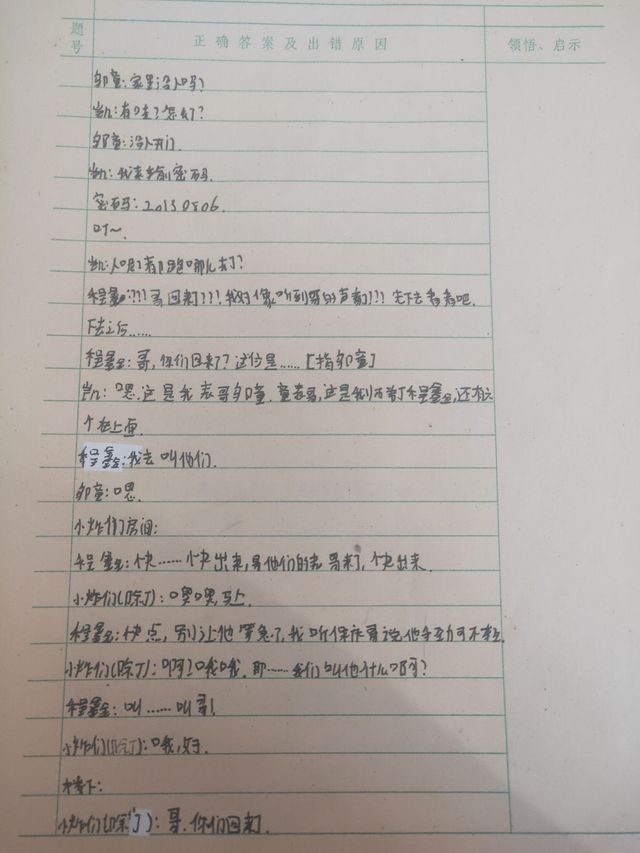 题号
正确答案及出错原因
领悟、启示
邹童:家里没人吗?
凯:有哇?怎么了?
邹童:没人开门.
凯:我来输密码.
密码:20130806.
叮~.
凯:人呢?都跑哪儿去了?
程鑫:???哥回来了???我好像听到哥的声音了???先下去看看吧.
下去之后……
程鑫:哥,你们回来了?这位是……[指邹童]
凯:嗯.这是我表哥邹童.童表哥,这是我师弟丁程鑫,还有六
个在上面.
程鑫:我去叫他们.
邹童:嗯.
小炸们房间:
程鑫:快……快出来,哥他们的表哥来了,快出来.
小炸们(除丁):噢噢,马上.
程鑫:快点,别让他等急了,我听保庆哥说他手劲可不轻.
小炸们(除丁):啊?哦哦.那……我们叫他什么啊?
程鑫:叫……叫哥!
小炸们(除丁):哦,好.
楼下:
小炸们(除丁):哥.你们回来了.